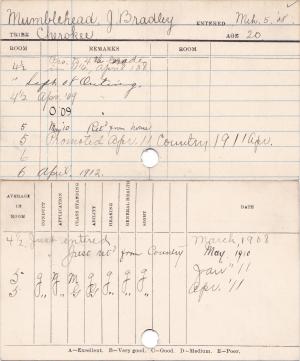 Mumblehead, J. Bradley ENTERED Mch. 5, '08
TRIBE Cherokee AGE 20
ROOM REMARKS ROOM REMARKS
4½ Pro. 4th Grade April '08
" Sept 08 Outing.
4½ Apr. '09
0 '09 "
5 May 10 Ret' from home
5 Promoted Apr. 11 Country 1911 Apr.
6
6 April, 1912.
AVERAGE IN ROOM CONDUCT APPLICATION CLASS STANDING ABILITY HEARING GENERAL HEALTH SIGHT DATE
4½ Just entered March, 1908
" Just ret' from Country May 1910
5 g g M g g g g Jan'y '11
5 " " G G " " " Apr. '11
A—Excellent. B—Very good. C—Good. D—Medium. E—Poor.